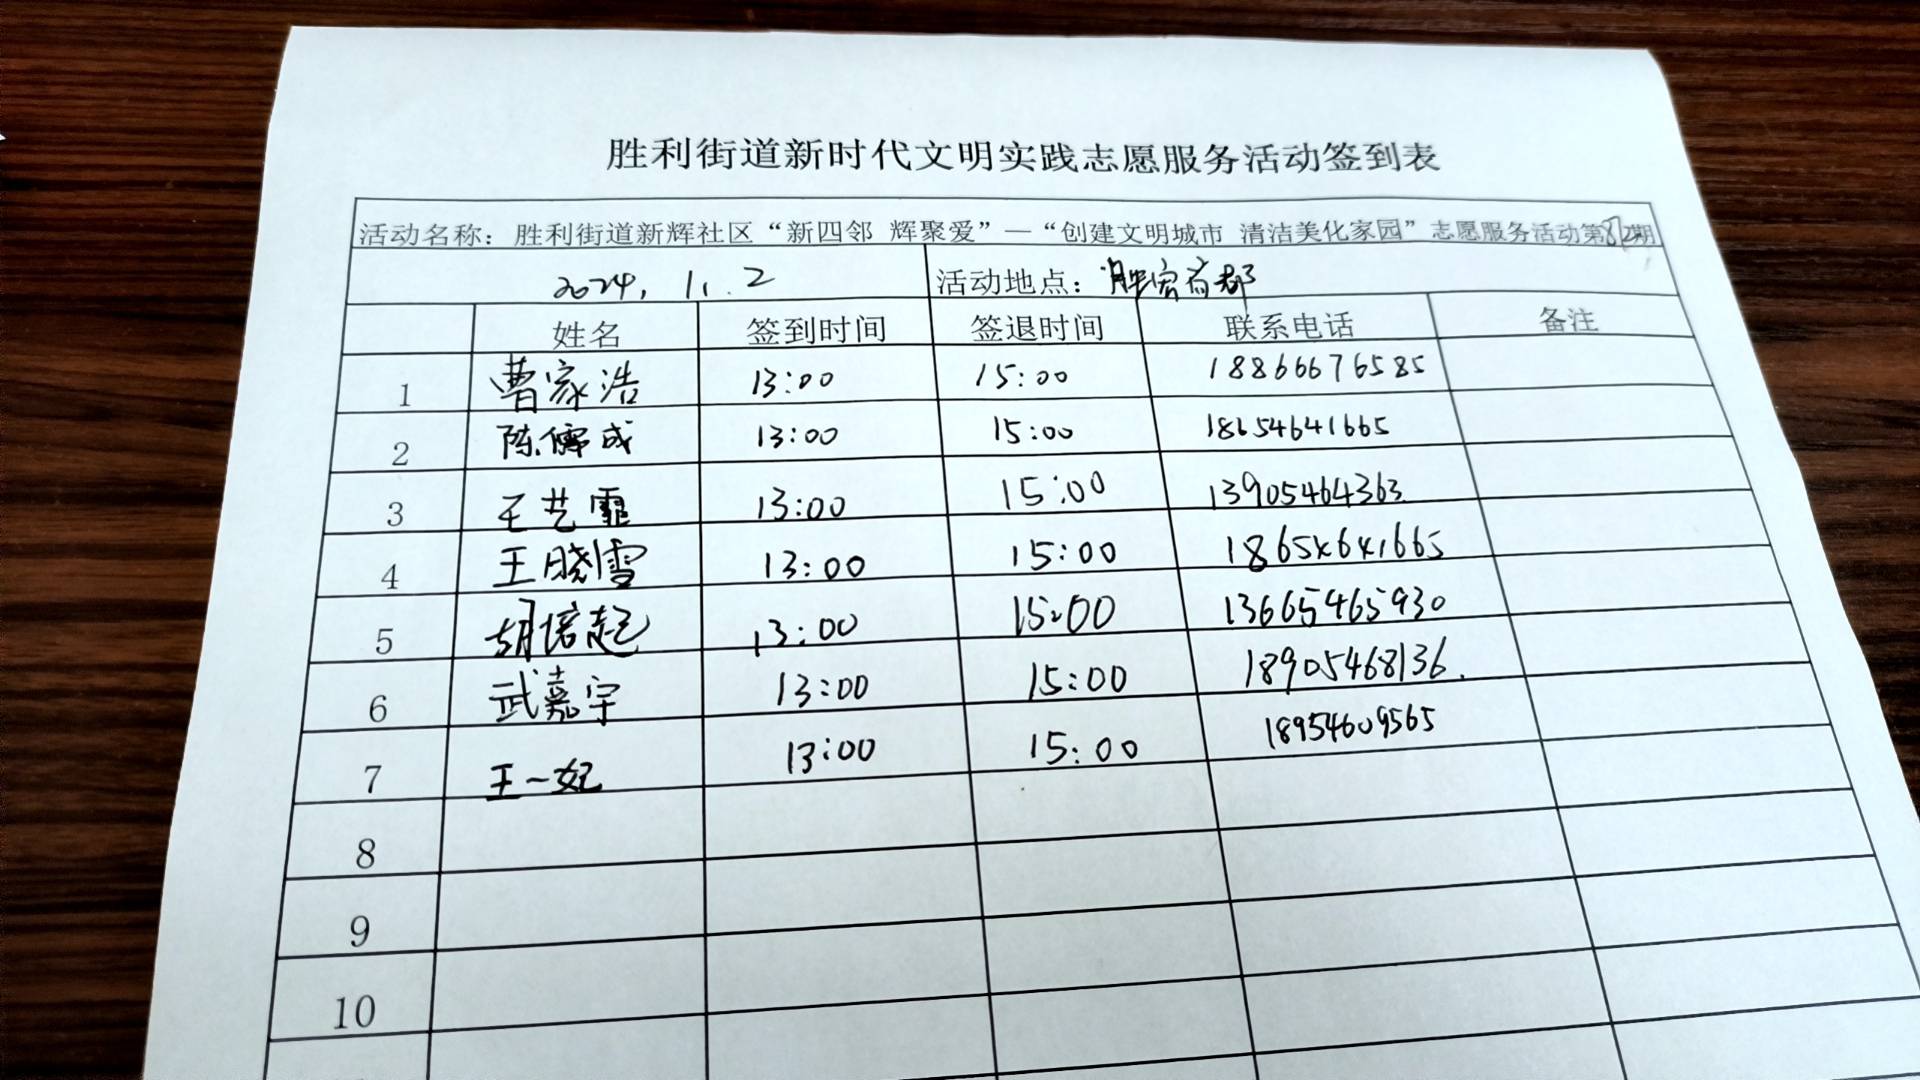 胜利街道新时代文明实践志愿服务活动签到表
活动名称：胜利街道新辉社区“新四邻 辉聚爱”—“创建文明城市 清洁美化家园”志愿服务活动第82期
2024. 11. 2 活动地点：胜宏首都
姓名 签到时间 签退时间 联系电话 备注
1 曹家浩 13:00 15:00 18866676585
2 陈儒成 13:00 15:00 18654641665
3 王艺霏 13:00 15:00 13905464363
4 王晓雪 13:00 15:00 18654641665
5 胡培起 13:00 15:00 13665465930
6 武嘉宇 13:00 15:00 18905468136.
7 王一妃 13:00 15:00 18954609565
8
9
10